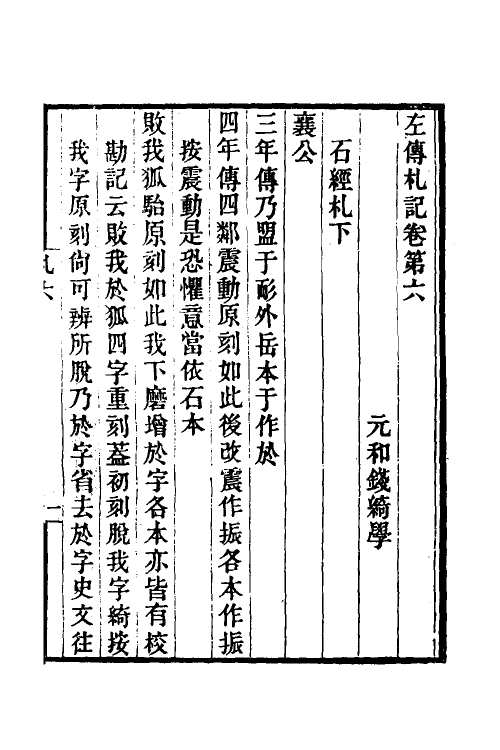 左傳札記卷第六
元和錢綺學
石經札下
襄公
三年傳乃盟于耏外岳本于作於
四年傳四鄰震動原刻如此後改震作振各本作振
按震動是恐懼意當依石本
敗我狐駘原刻如此我下磨增於字各本亦皆有校
勘記云敗我於狐四字重刻葢初刻脫我字綺按
我字原刻尙可辨所脫乃於字省去於字史文往